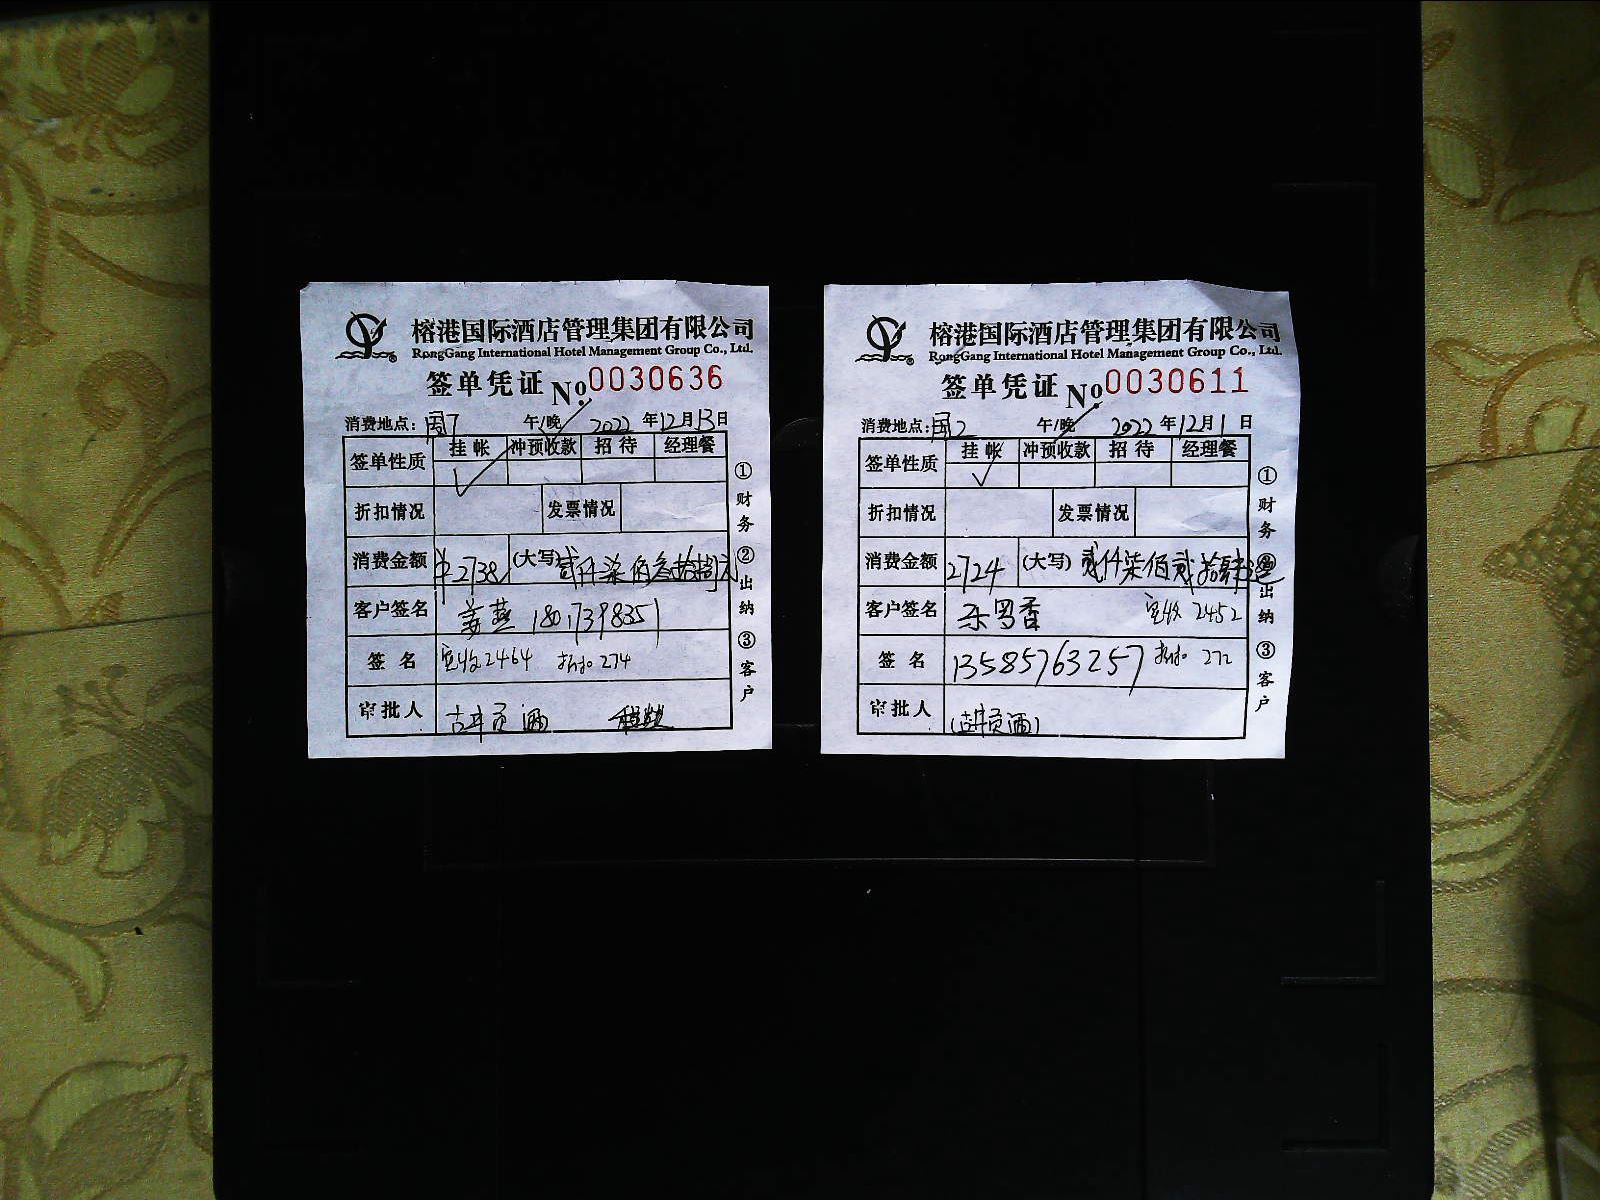 榕港国际酒店管理集团有限公司
RongGang International Hotel Management Group Co., Ltd.
签单凭证 No. 0030636
消费地点: 国7 午/晚 2022 年 12 月 13 日
签单性质 挂帐 冲预收款 招待 经理餐
✓
折扣情况 发票情况
消费金额 ¥2738 (大写) 贰仟柒佰叁拾捌元
客户签名 姜燕
签名 实收2464 折扣 274
审批人 古井贡酒
①财务 ②出纳 ③客户
榕港国际酒店管理集团有限公司
RongGang International Hotel Management Group Co., Ltd.
签单凭证 No. 0030611
消费地点: 国2 午/晚 2022 年 12 月 1 日
签单性质 挂帐 冲预收款 招待 经理餐
✓
折扣情况 发票情况
消费金额 2724 (大写) 贰仟柒佰贰拾肆元
客户签名 实收 2452
签名 13585763257 折扣 272
审批人 (古井贡酒)
①财务 ②出纳 ③客户